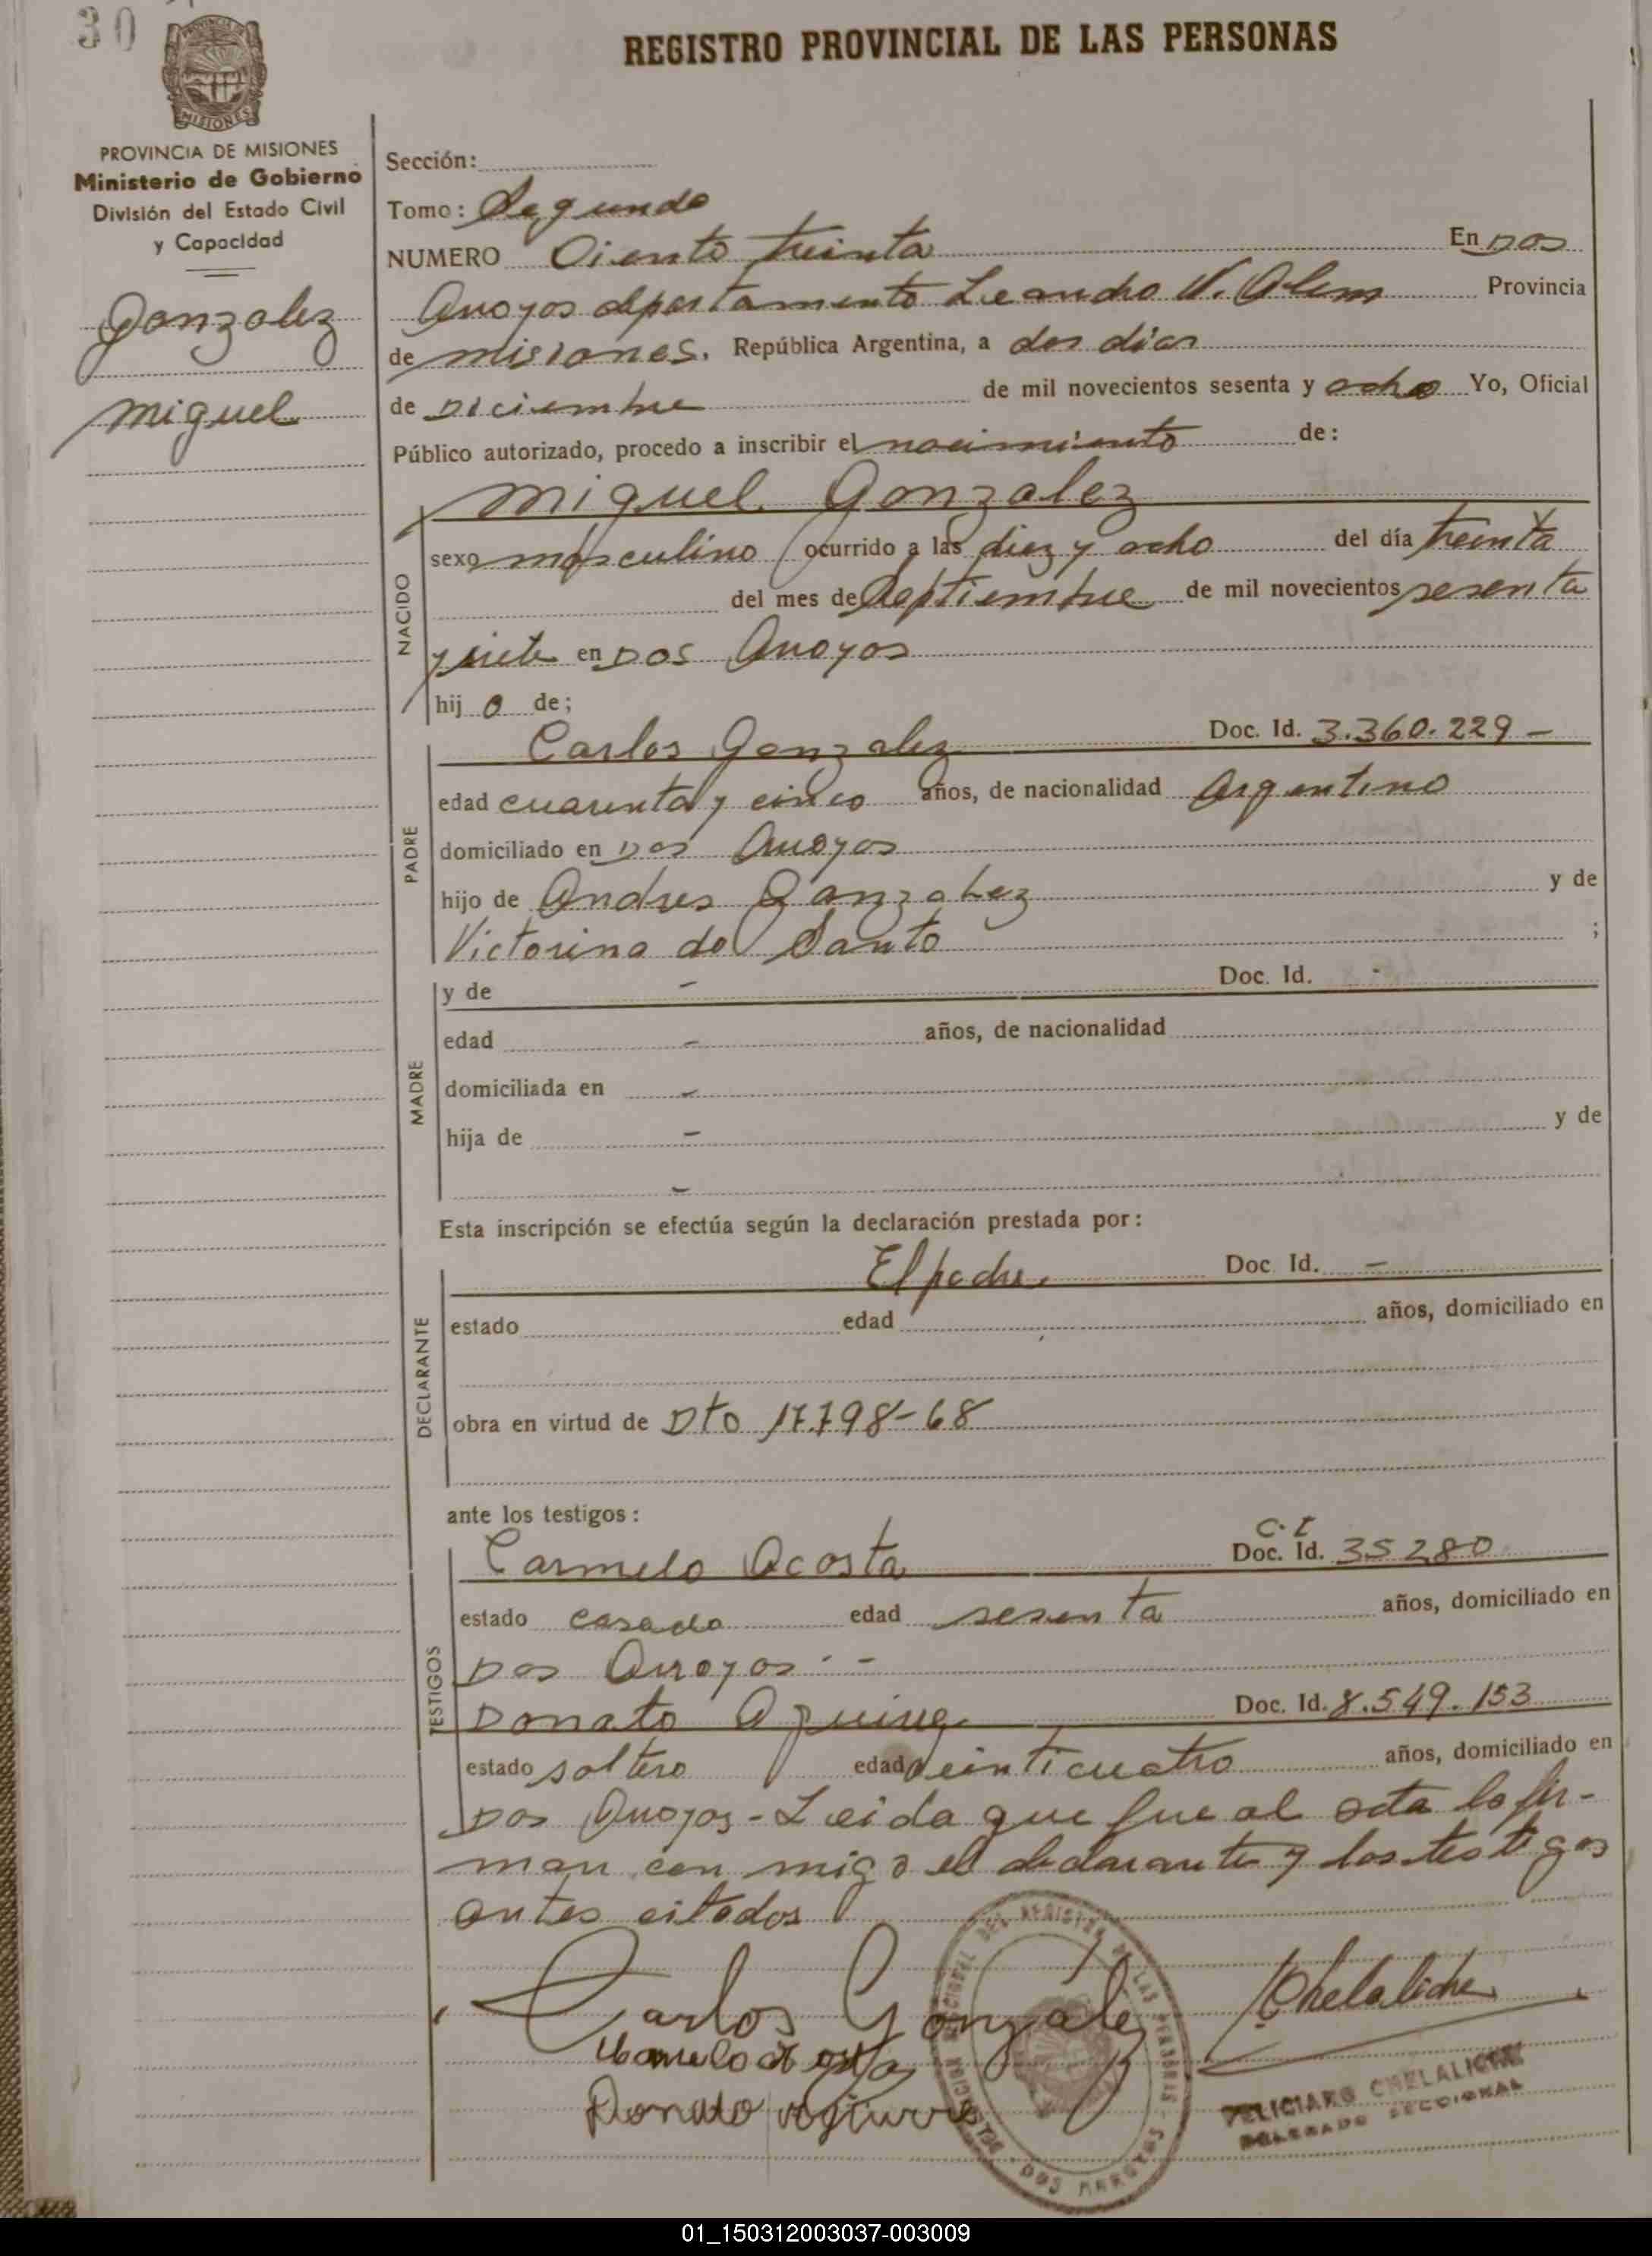 30
REGISTRO PROVINCIAL DE LAS PERSONAS
MISIONES
PROVINCIA DE MISIONES
Ministerio de Gobierno
División del Estado Civil
y Capacidad
Gonzalez
Miguel
Sección:
Tomo: Segundo
NUMERO Ciento treinta En Dos
Arroyos departamento Leandro N. Alem Provincia
de misiones. República Argentina, a dos dias
de Diciembre de mil novecientos sesenta y ocho Yo, Oficial
Público autorizado, procedo a inscribir el nacimiento de:
Miguel Gonzalez
NACIDO
sexo masculino ocurrido a las diez y ocho del día treinta
del mes de Septiembre de mil novecientos sesenta
y siete en Dos Arroyos
hij o de;
PADRE
Carlos Gonzalez Doc. Id. 3.360.229 -
edad cuarenta y cinco años, de nacionalidad Argentino
domiciliado en Dos Arroyos
hijo de Andres Gonzalez y de
Victorina do Santo ;
MADRE
y de - Doc. Id. -
edad - años, de nacionalidad
domiciliada en -
hija de - y de
-
Esta inscripción se efectúa según la declaración prestada por:
DECLARANTE
El padre. Doc. Id. -
estado edad años, domiciliado en
obra en virtud de Dto 17.798-68
ante los testigos:
TESTIGOS
C. I
Carmelo Acosta Doc. Id. 35280
estado casado edad sesenta años, domiciliado en
Dos Arroyos. -
Donato Doc. Id. 8.549.153
estado soltero edad veinticuatro años, domiciliado en
Dos Arroyos - Leida que fue al acta la fir-
man con migo el declarante y los testigos
antes citados
Carlos Gonzalez
Chelaliche
Donato
DOS ARROYOS
FELICIANO CHELALICHE
DELEGADO SECCIONAL
01_150312003037-003009